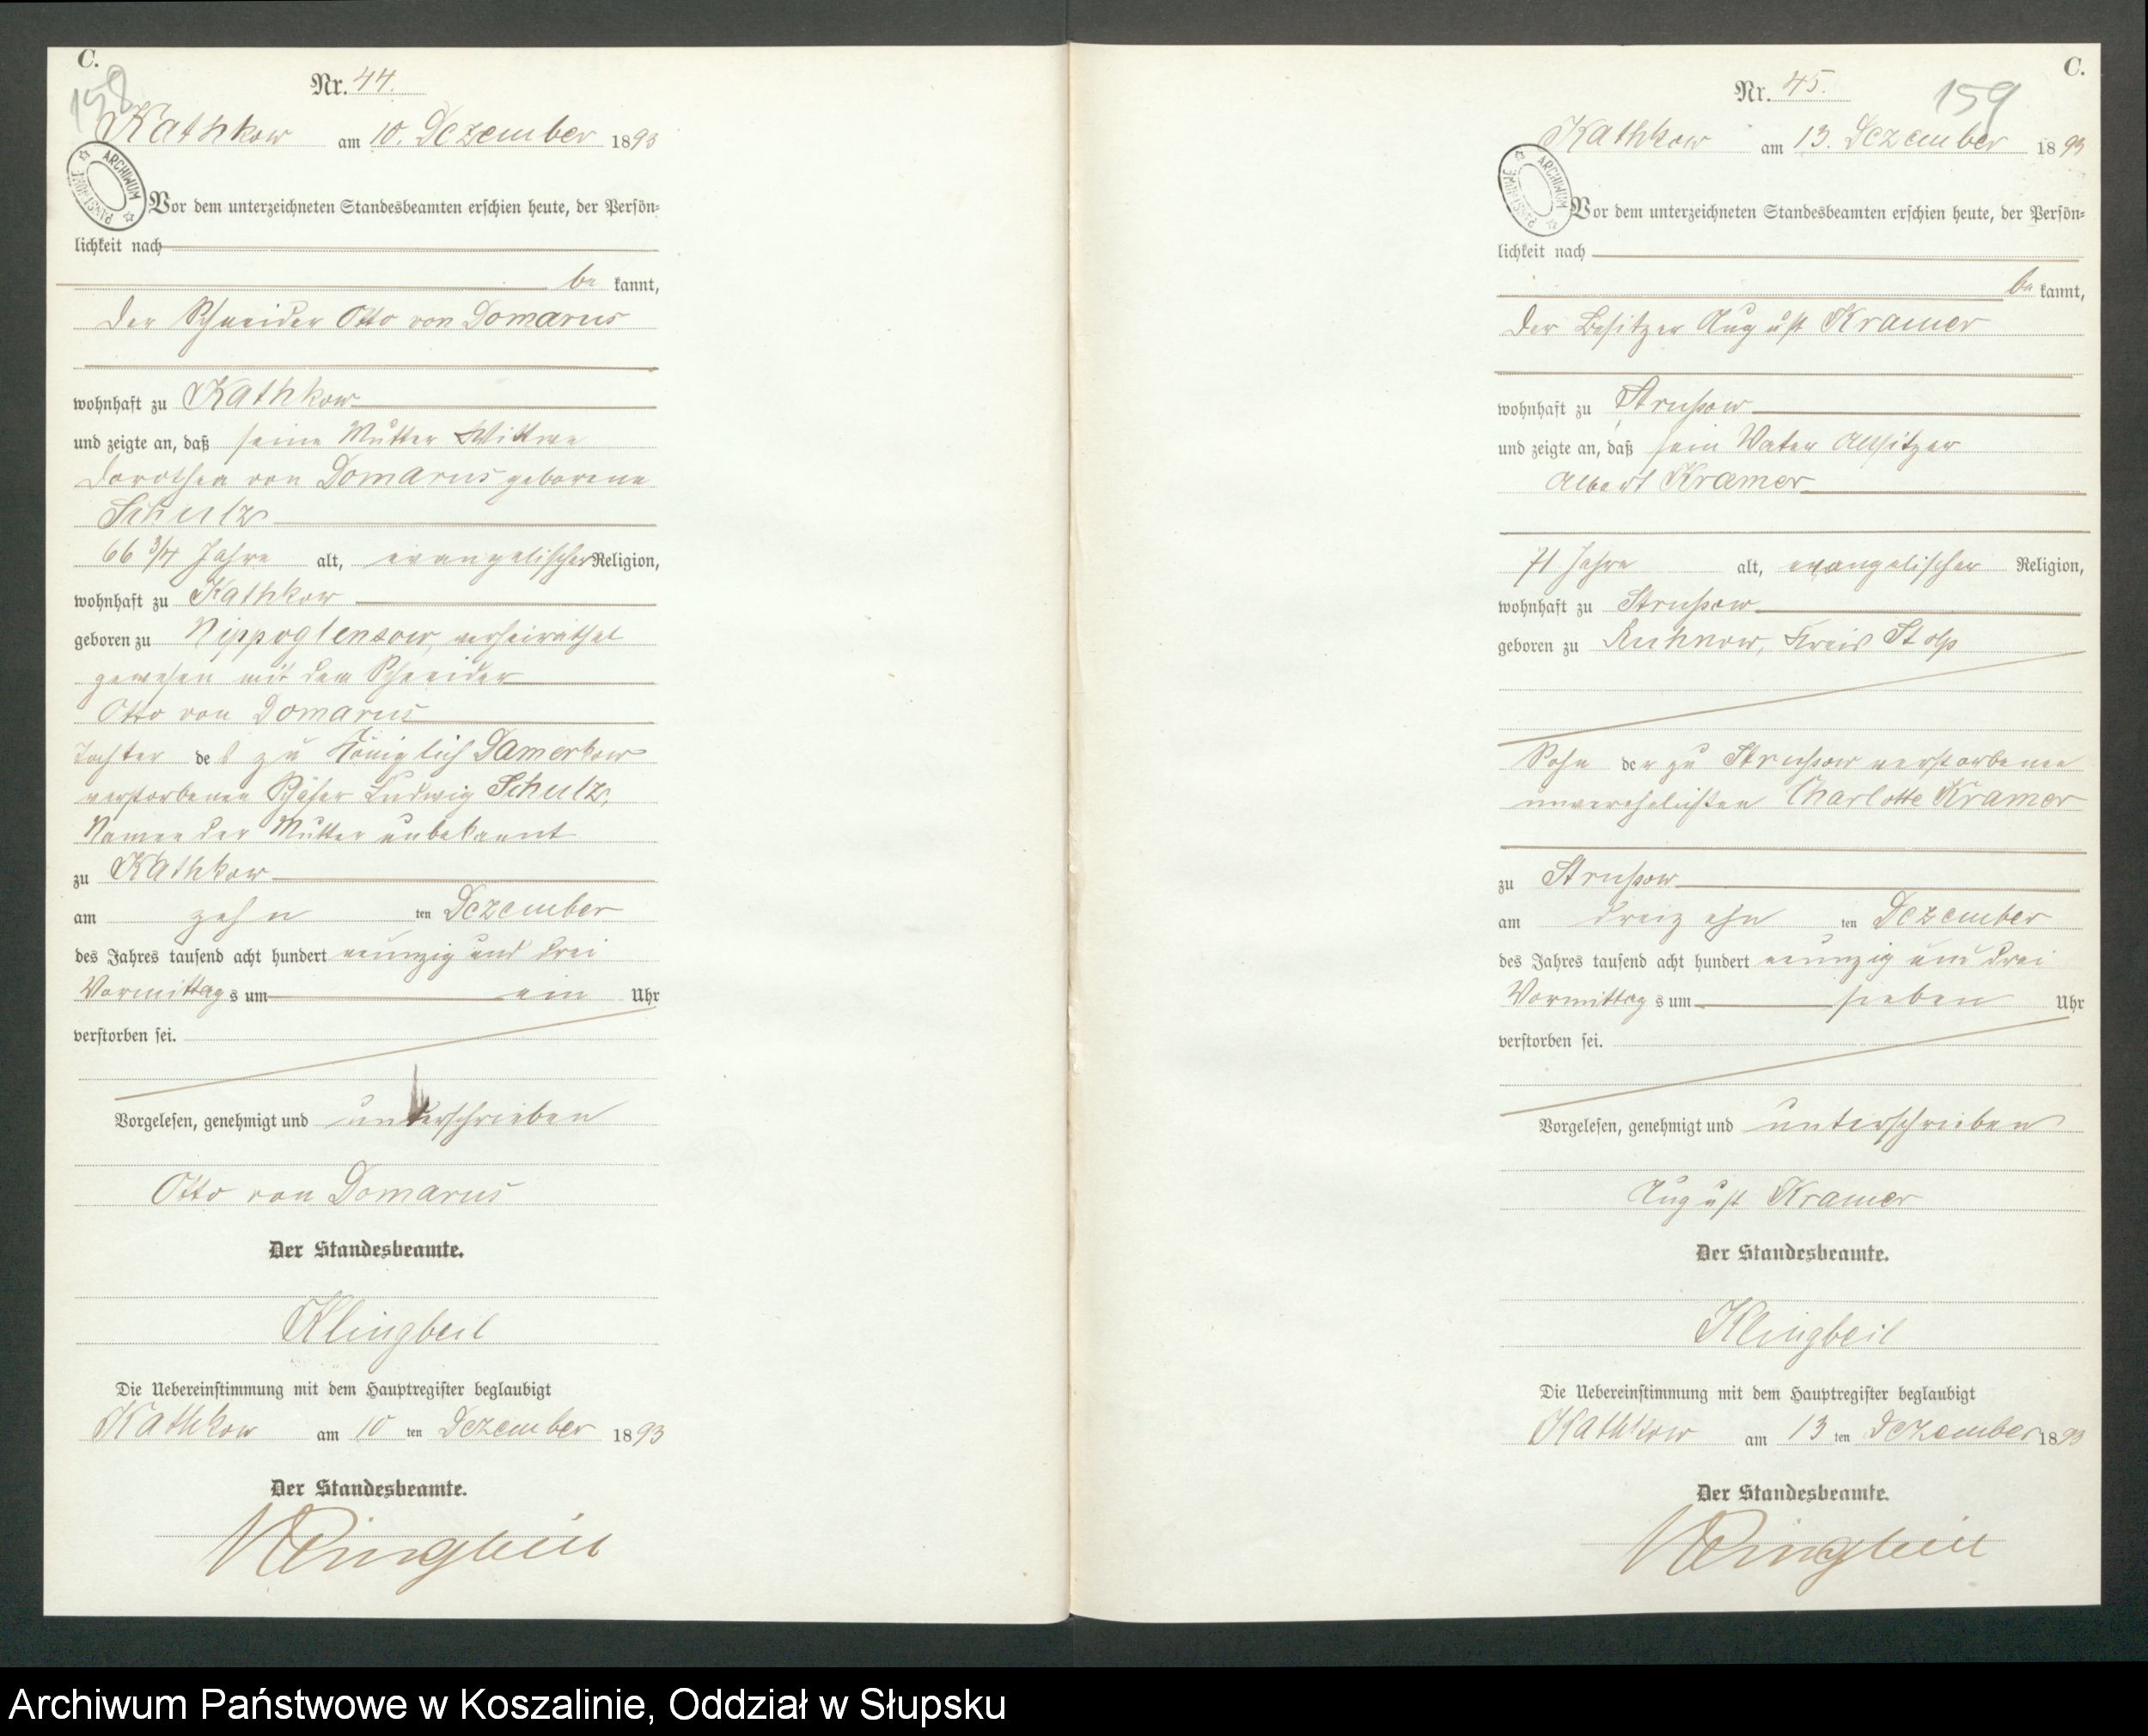 C.
158
Nr. 44.
Kathkow am 10. Dezember 1893
ARCHIWUM PAŃSTWOWE
Vor dem unterzeichneten Standesbeamten erschien heute, der Persön=
lichkeit nach
be kannt,
der Schneider Otto von Domarus
wohnhaft zu Kathkow
und zeigte an, daß seine Mutter Wittwe
Dorothea von Domarus geborene
Schulz
66 3/4 Jahre alt, evangelischer Religion,
wohnhaft zu Kathkow
geboren zu Nippoglensow, verheirathet
gewesen mit dem Schneider
Otto von Domarus
Tochter des zu Königlich Damerkow
verstorbenen Schäfer Ludwig Schulz,
Namen der Mutter unbekannt
zu Kathkow
am zehn ten Dezember
des Jahres tausend acht hundert neunzig und drei
Vormittags um ein Uhr
verstorben sei.
Vorgelesen, genehmigt und unterschrieben
Otto von Domarus
Der Standesbeamte.
Klingbeil
Die Uebereinstimmung mit dem Hauptregister beglaubigt
Kathkow am 10 ten Dezember 1893
Der Standesbeamte.
Klingbeil
C.
159
Nr. 45.
Kathkow am 13. Dezember 1893
ARCHIWUM PAŃSTWOWE
Vor dem unterzeichneten Standesbeamten erschien heute, der Persön=
lichkeit nach
be kannt,
der Besitzer August Kramer
wohnhaft zu Strussow
und zeigte an, daß sein Vater Altsitzer
Albert Kramer
71 Jahre alt, evangelischer Religion,
wohnhaft zu Strussow
geboren zu Kuhnow, Kreis Stolp
Sohn der zu Strussow verstorbenen
unverehelichten Charlotte Kramer
zu Strussow
am dreizehn ten Dezember
des Jahres tausend acht hundert neunzig und drei
Vormittags um sieben Uhr
verstorben sei.
Vorgelesen, genehmigt und unterschrieben
August Kramer
Der Standesbeamte.
Klingbeil
Die Uebereinstimmung mit dem Hauptregister beglaubigt
Kathkow am 13 ten Dezember 1893
Der Standesbeamte.
Klingbeil
Archiwum Państwowe w Koszalinie, Oddział w Słupsku